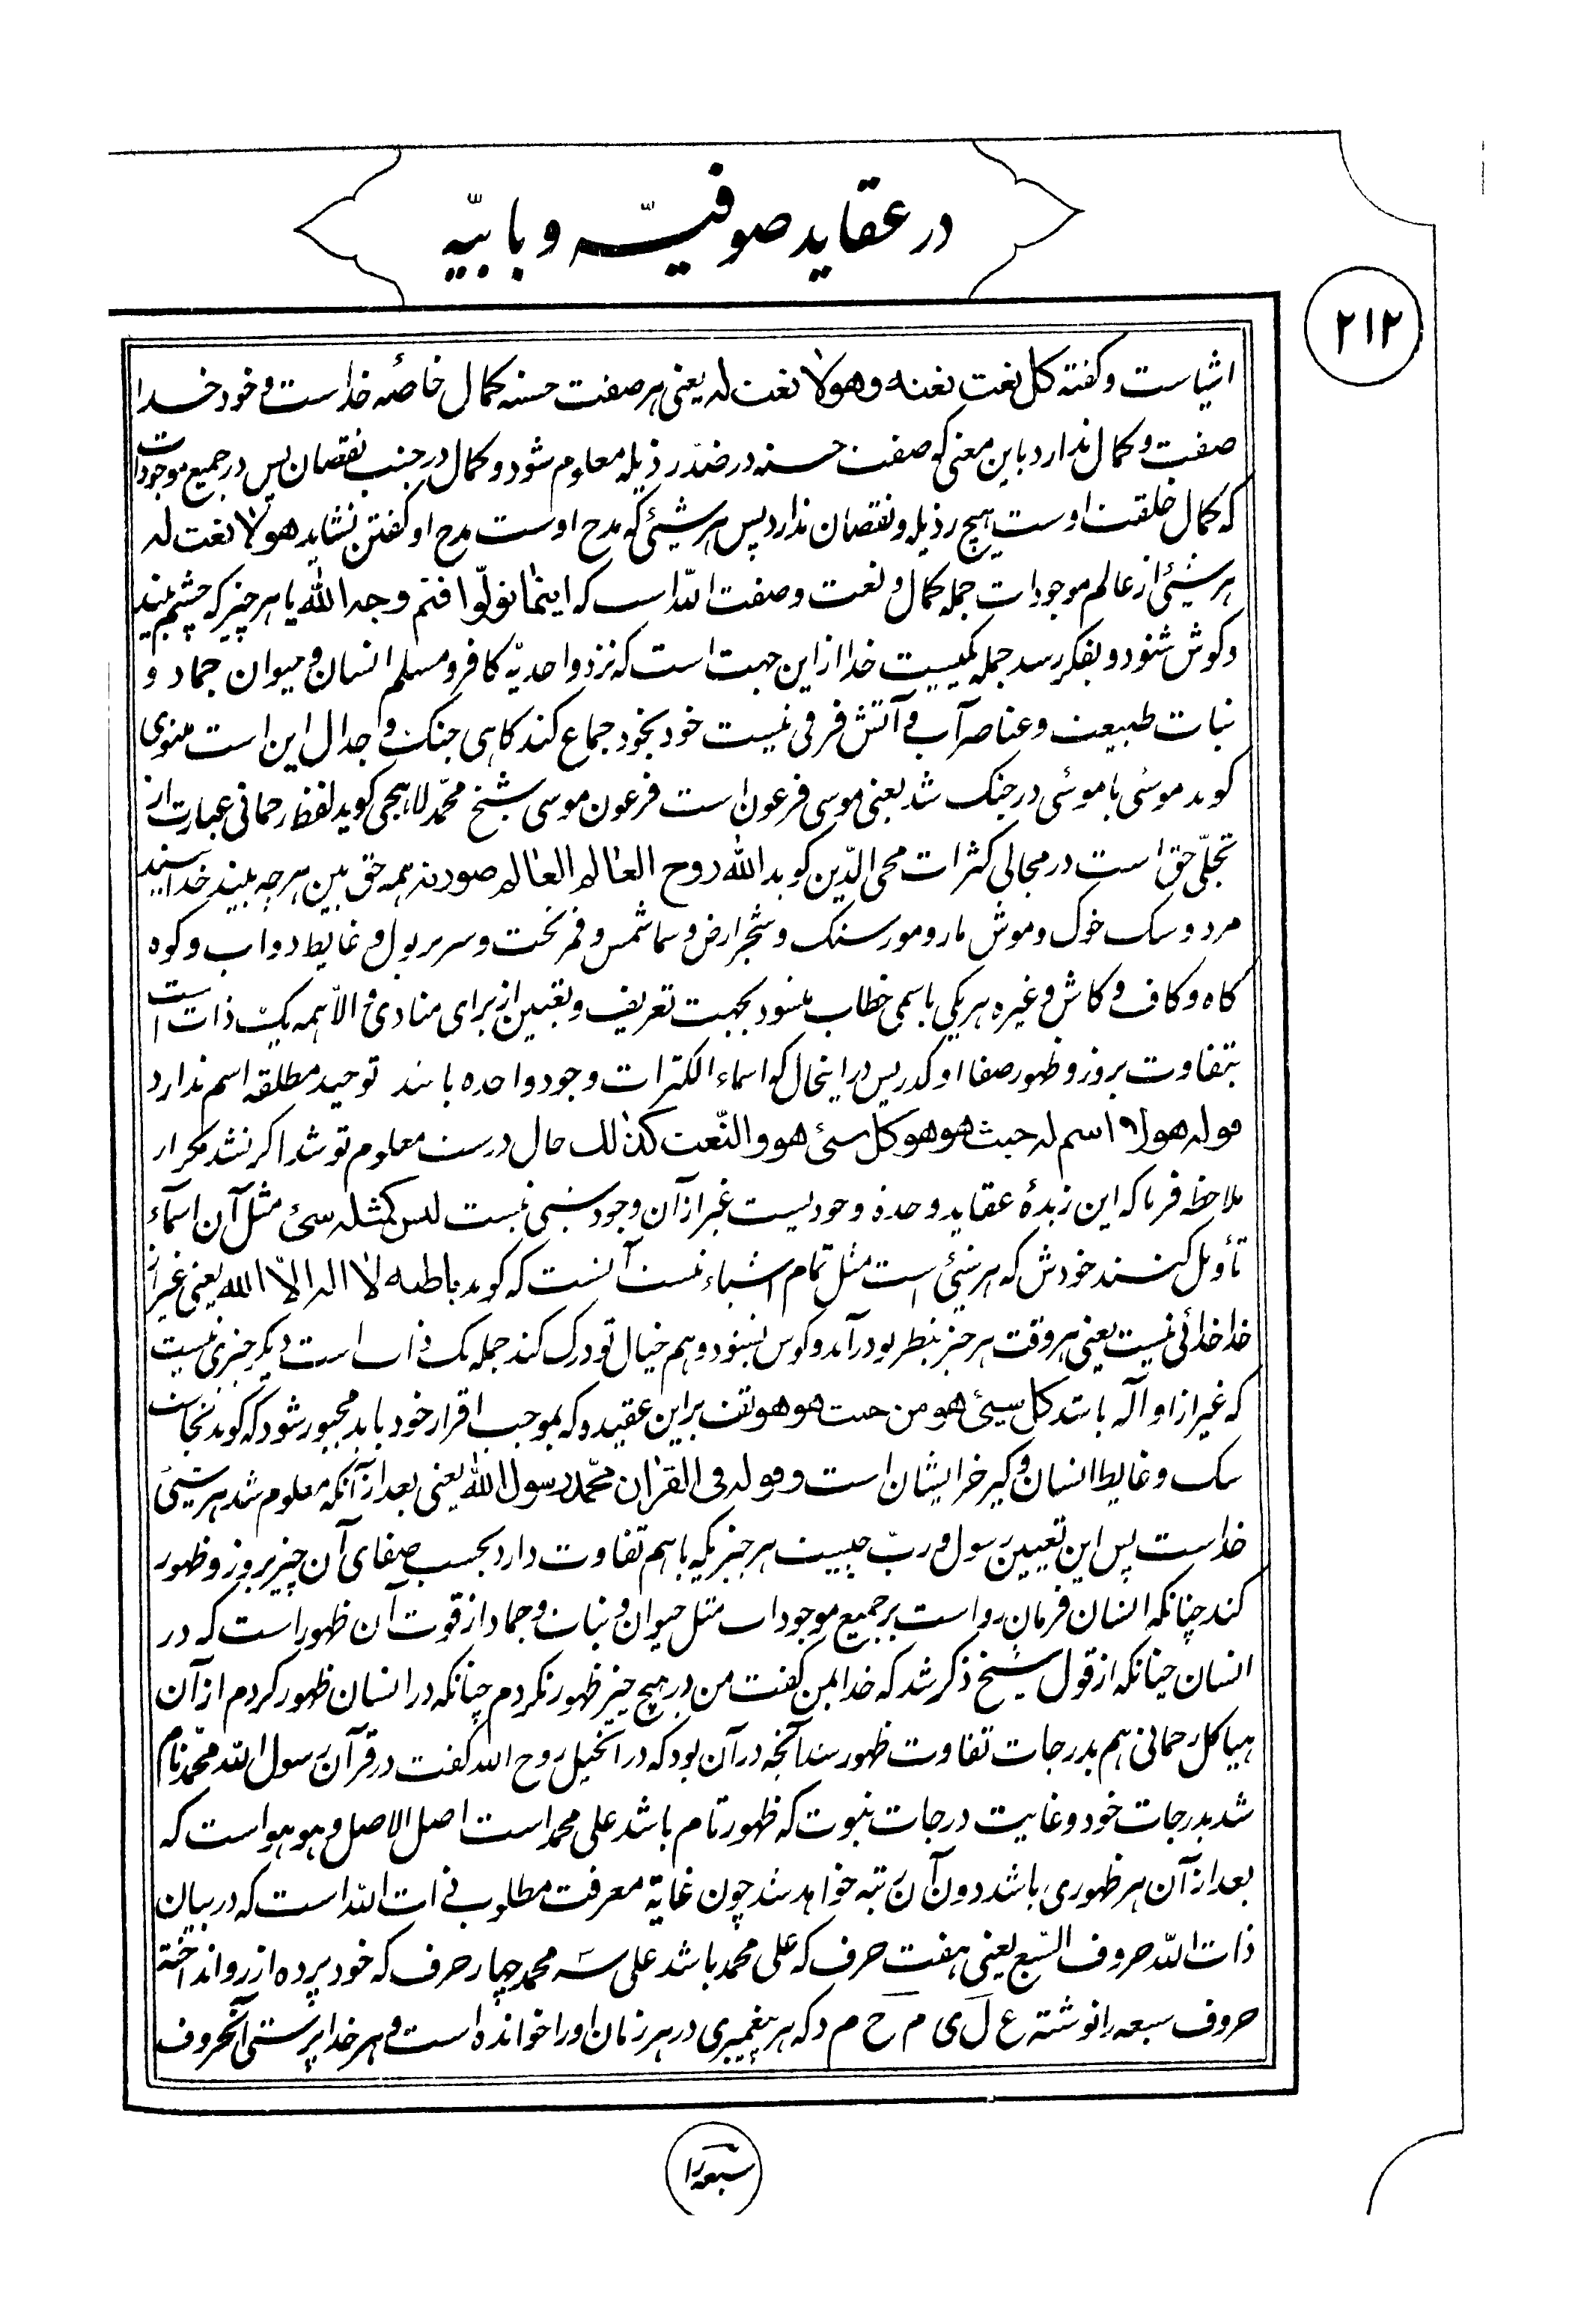 در عقاید صوفیّه و بابیّه
۲۱۲
اشیاست و کفته کل نعت نعته وهو لا نعت له یعنی هر صفت حسنه کمال خاصّه خداست و خود خدا
صفت و کمال ندارد باین معنی که صفت حسنه در ضدّ رذیله معلوم شود و کمال در جنب نقصان پس در جمیع موجودات
که کمال خلقت اوست هیچ رذیله و نقصان ندارد پس هر شیئی که مدح اوست مدح او کفتن نشاید هو لا نعت له
هر شیئی از عالم موجودات جمله کمال و نعت و صفت اللّه است که اینما تولّوا فثم وجه الله یا هر چیز که چشم بیند
و کوش شنود و بفکر رسد جمله یکیست خدا از این جهت است که نزد واحدیّه کافر و مسلم انسان و حیوان جماد و
نبات طبیعت و عناصر آب و آتش فرقی نیست خود بخود جماع کند کاهی جنک و جدال این است مثنوی
کوید موسی با موسی در جنک شد یعنی موسی فرعون است فرعون موسی شیخ محمّد لاهیجی کوید لفظ رحمانی عبارت از
تجلّی حق است در مجالی کثرات محی الدّین کوید الله روح العالم العالم صورته همه حق بین هر چه بیند خدا بیند
مرد و سک خوک و موش مار و مور سنک و شجر ارض و سما شمس و قمر تخت و سریر بول و غایط دواب و کوه
کاه و کاف و کاش و غیره هر یکی باسمی خطاب میشود بجهت تعریف و تعیین از برای منادی و الّا همه یک ذات است
بتفاوت بروز و ظهور صفا او کدر پس در اینحال که اسماء الکثرات وجود واحده باشد توحید مطلقه اسم ندارد
قوله هو لا اسم له حیث هو هو کل شیئ هو و النّعت کذلک حال درست معلوم تو شد اکر نشد مکرار
ملاحظه فرما که این زبدهٔ عقاید وحدة وجودیست غیر از آن وجود شیئی نیست لیس کمثله شیئ مثل آن اسمآء
تأویل کنند خودش که هر شیئی است مثل تمام اشیاء نیست آنست که کوید باطنه لا اله الّا الله یعنی غیر از
خدا خدائی نیست یعنی هر وقت هر چیز بنظر تو درآید و کوس بشنود و هم خیال تو درک کند جمله یک ذات است دیکر چیزی نیست
که غیر از او آله باشد کل شیئ هو من حیث هو هو تف بر این عقیده که بموجب اقرار خود باید مجبور شود که کوید نجاست
سک و غایط انسان و کیر خر ایشان است و قوله فی القرآن محمّد رسول الله یعنی بعد از آنکه معلوم شد هر شیئی
خداست پس این تعیین رسول و ربّ چیست هر چیزیکه باهم تفاوت دارد بحسب صفای آن چیز بروز و ظهور
کند چنانکه انسان فرمان رواست بر جمیع موجودات مثل حیوان و نبات و جماد از قوت آن ظهور است که در
انسان چنانکه از قول شیخ ذکر شد که خدا بمن کفت من در هیچ چیز ظهور نکردم چنانکه در انسان ظهور کردم از آن
هیاکل رحمانی هم بدرجات تفاوت ظهور شد آنچه در آن بود که در انجیل روح اللّه کفت در قرآن رسول اللّه محمّد نام
شد بدرجات خود و غایت درجات نبوت که ظهور تام باشد علی محمد است اصل الاصل و هو هو است که
بعد از آن هر ظهوری باشد دون آن رتبه خواهد شد چون غایة معرفت مطلوب ذات اللّه است که در بیان
ذات اللّه حروف السّبع یعنی هفت حرف که علی محمد باشد علی سه محمد چهار حرف که خود پرده از رو انداخته
حروف سبعه را نوشته ع ل ی م ح م د که هر پیغمبری در هر زمان او را خوانده است و هر خدا پرستی آنحروف
سبعه را